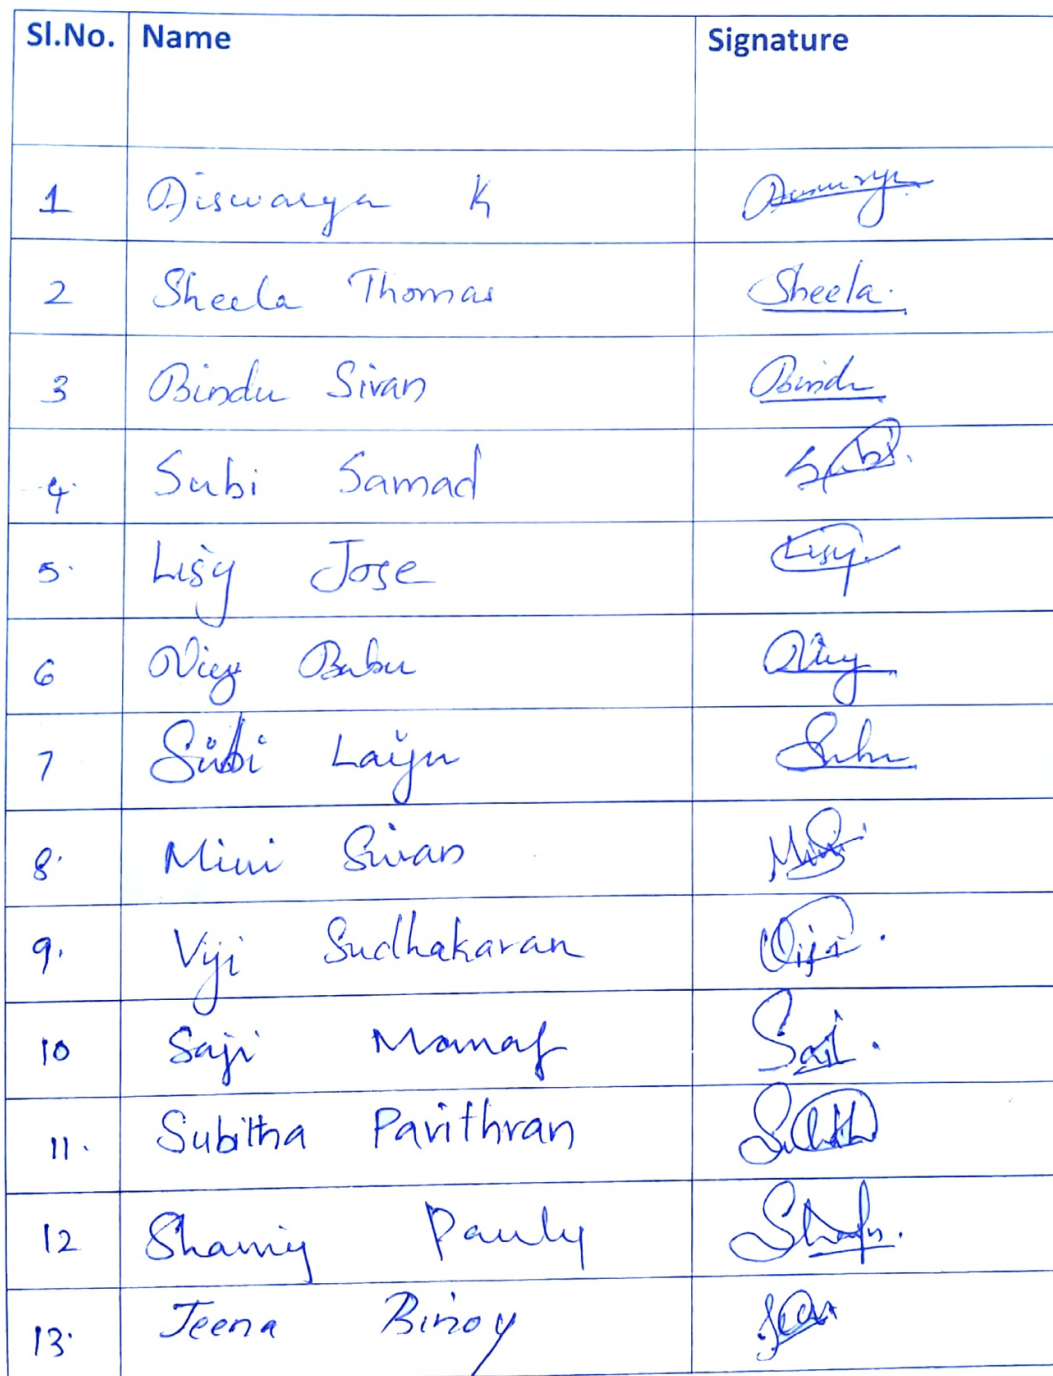 Sl.No. Name Signature
1 Aiswarya K
2 Sheela Thomas Sheela.
3 Bindu Sivan Bindu
4. Subi Samad Subi.
5. Lisy Jose Lisy
6 Babu
7 Subi Laiju
8. Mini Sivan Mini
9. Viji Sudhakaran Viji.
10 Saji Manaf Saji.
11. Subitha Pavithran
12 Pauly
13. Jeena Binoy